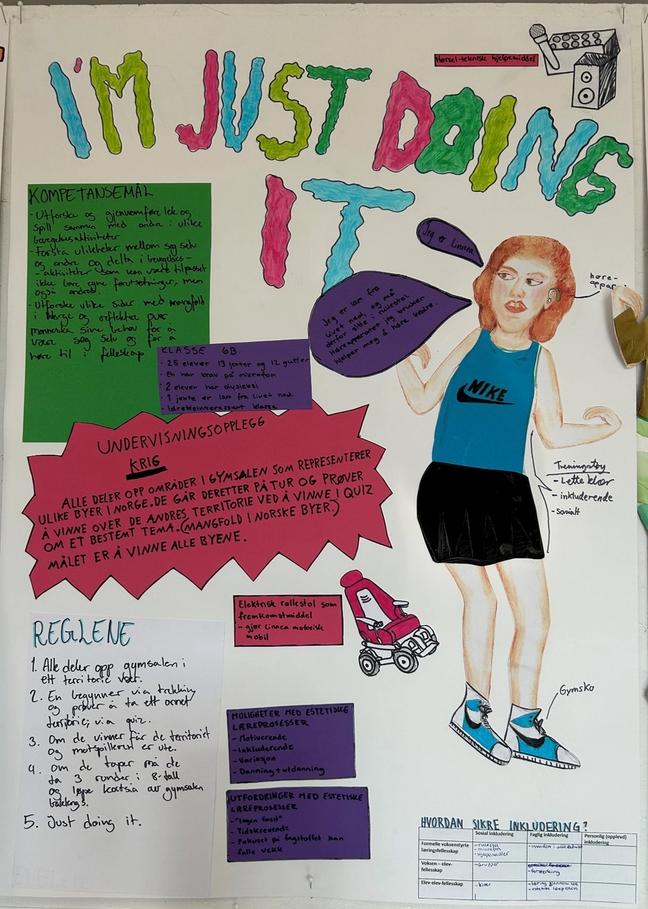 Hørsel-tekniske hjelpemiddel
I'M JUST DOING
IT
KOMPETANSEMÅL
- Utforske og gjennomføre lek og
spill sammen med andre i ulike
bevegelsesaktiviteter
- Forstå ulikheter mellom seg selv
og andre og delta i bevegelses-
aktiviteter som kan være tilpasset
ikke bare egne forutsetninger, men
også andres.
- Utforske ulike sider ved mangfold
i Norge og reflektere over
menneska sine behov for å
være seg selv og for å
høre til i fellesskap
Jeg er Linnea
Jeg er lam fra
livet ned, og må
derfor sitte i rullestol.
Høreapparatet jeg bruker
hjelper meg å høre bedre.
høre-
apparat
KLASSE 6B
- 25 elever 13 jenter og 12 gutter
- En har krav på mikrofon
- 2 elever har dysleksi
- 1 jente er lam fra livet ned.
- Idrettsinteressert klasse
NIKE
UNDERVISNINGSOPPLEGG
KRIG
ALLE DELER OPP OMRÅDER I GYMSALEN SOM REPRESENTERER
ULIKE BYER I NORGE. DE GÅR DERETTER PÅ TUR OG PRØVER
Å VINNE OVER DE ANDRES TERRITORIE VED Å VINNE I QUIZ
OM ET BESTEMT TEMA. (MANGFOLD I NORSKE BYER.)
MÅLET ER Å VINNE ALLE BYENE.
Treningstøy
- Lette klær
- inkluderende
- sosialt
Elektrisk rullestol som
fremkomstmiddel
- gjør Linnea motorisk
mobil
REGLENE
1. Alle deler opp gymsalen i
ett territorie hver.
2. En begynner via trekning
og prøver å ta ett annet
territorie, via quiz.
3. Om de vinner får de territoriet
og motspilleren er ute.
4. Om de taper må de
ta 3 runder i 8-tall
og løpe kortsia av gymsalen
baklengs.
5. Just doing it.
Gymsko
MULIGHETER MED ESTETISKE
LÆREPROSESSER
- Motiverende
- Inkluderende
- Variasjon
- Danning + utdanning
UTFORDRINGER MED ESTETISKE
LÆREPROSESSER
- "Ingen fasit"
- Tidskrevende
- Fokuset på fagstoffet kan
falle vekk
HVORDAN SIKRE INKLUDERING?
Sosial inkludering
Faglig inkludering
Personlig (opplevd)
inkludering
Formelle voksenstyrte
læringsfellesskap
- mikrofon
- hjelpemidler
Voksen – elev-
fellesskap
Elev-elev-fellesskap